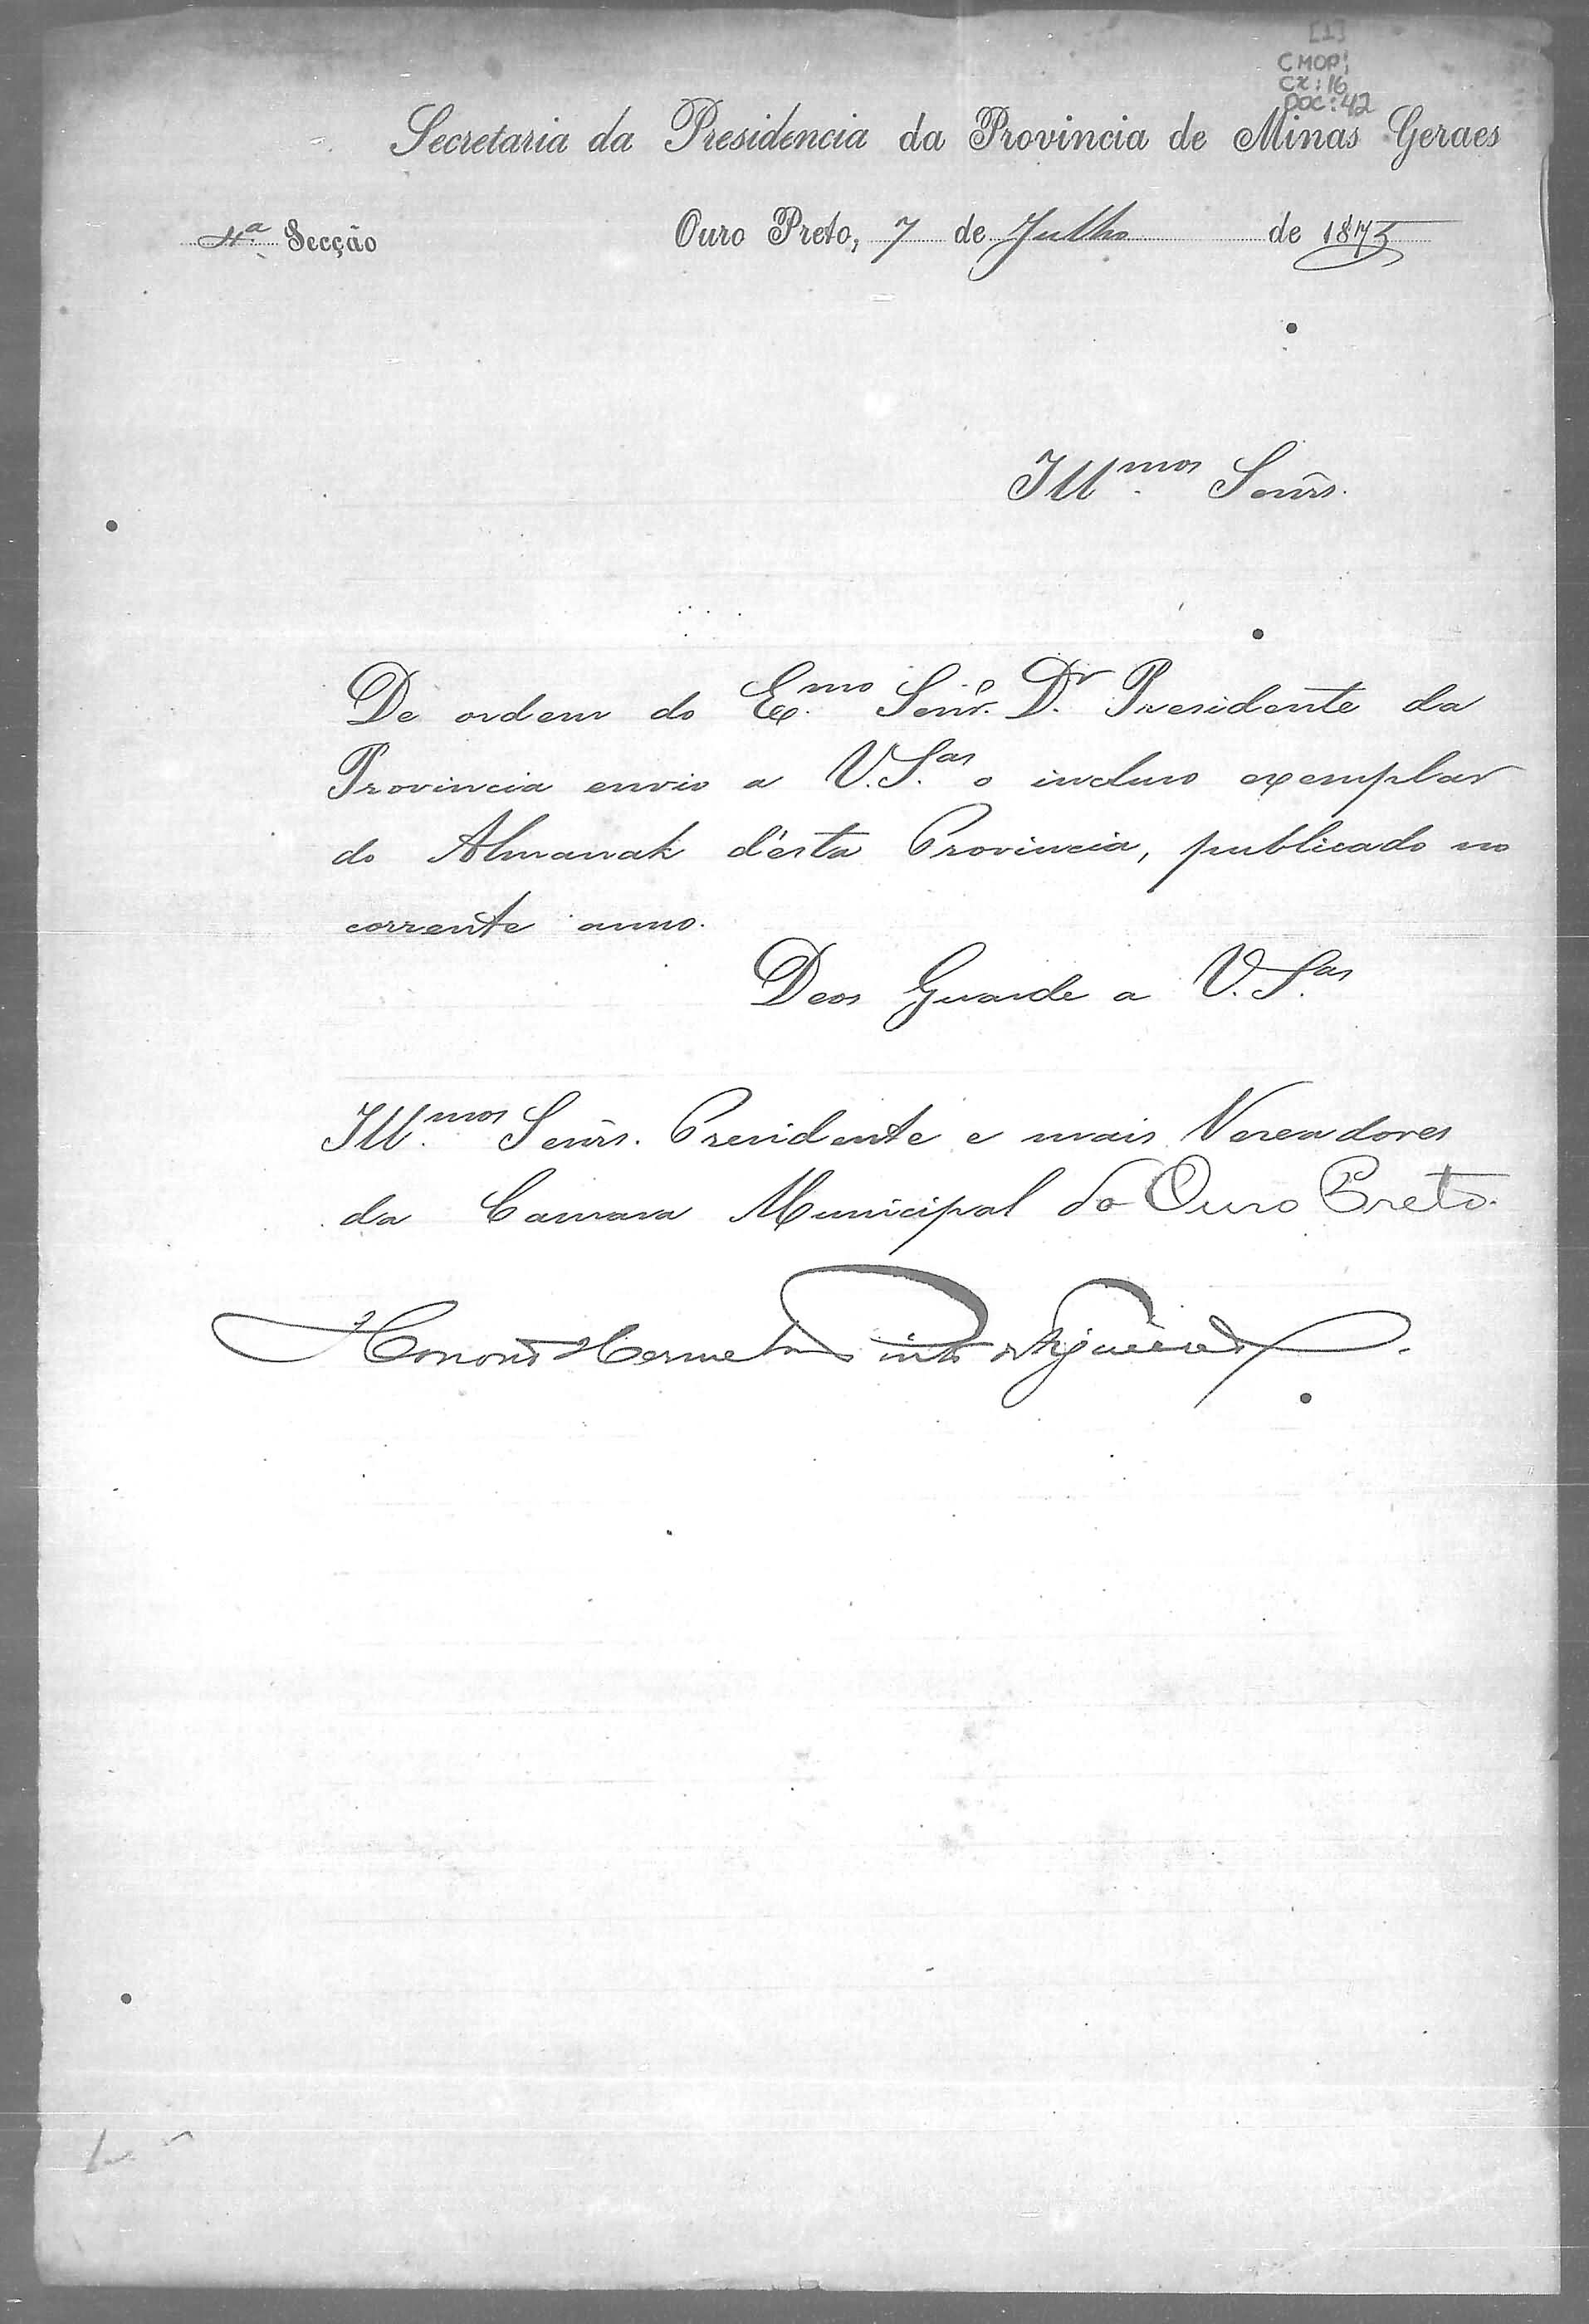 [1]
CMOP;
CX: 16
DOC: 42
Secretaria da Presidencia da Provincia de Minas Geraes
4ª Secção Ouro Preto, 7 de Julho de 1875
Illmos Senrs.
De ordem do Exmo Senr. Dr. Presidente da
Provincia envio a V.Sas o incluso exemplar
do Almanak d'esta Provincia, publicado no
corrente anno.
Deos Guarde a V.Sas
Illmos Senrs. Presidente e mais Vereadores
da Camara Municipal do Ouro Preto.
Honorio Hermeto Pinto de Figueiredo.